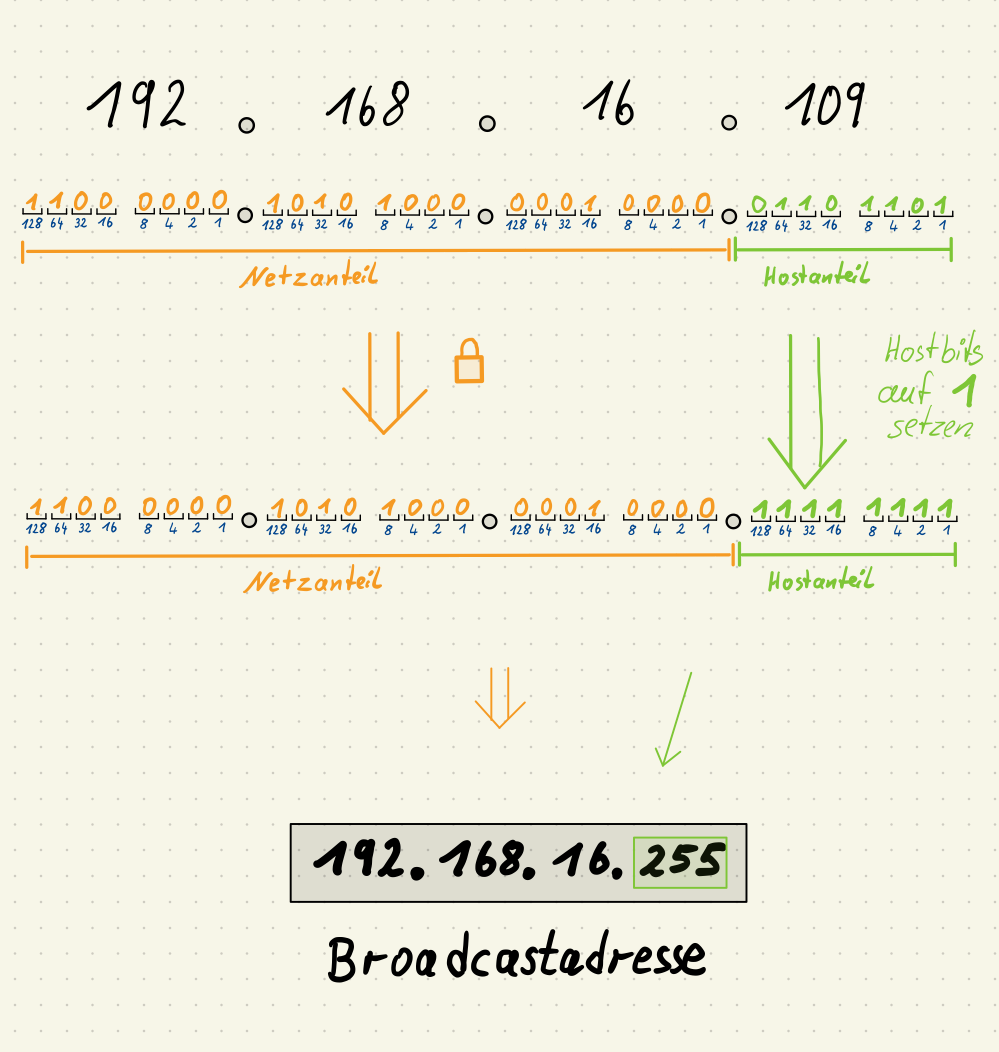 192 . 168 . 16 . 109
1100 0000 . 1010 1000 . 0001 0000 . 0110 1101
128 64 32 16 8 4 2 1 128 64 32 16 8 4 2 1 128 64 32 16 8 4 2 1 128 64 32 16 8 4 2 1
Netzanteil Hostanteil
Hostbits
auf 1
setzen
1100 0000 . 1010 1000 . 0001 0000 . 1111 1111
128 64 32 16 8 4 2 1 128 64 32 16 8 4 2 1 128 64 32 16 8 4 2 1 128 64 32 16 8 4 2 1
Netzanteil Hostanteil
192.168.16.255
Broadcastadresse